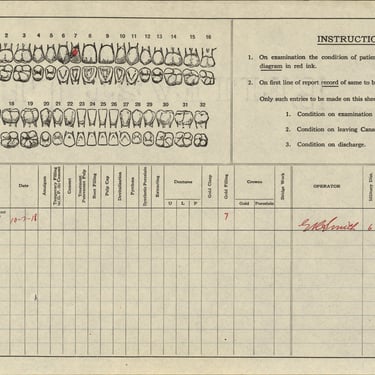 2 3 4 5 6 7 8 9 10 11 12 13 14 15 16
INSTRUCTIO
1. On examination the condition of patie
diagram in red ink.
2. On first line of report record of same to b
Only such entries to be made on this shee
1. Condition on examination
2. Condition on leaving Cana
3. Condition on discharge.
18 19 20 21 22 23 24 25 26 27 28 29 30 31 32
Date Amalgam Cement Root Filling Pulp Cap Devitalization Synthetic Porcelain Extracting Dentures U L P Gold Clasp Gold Filling Crowns Gold Porcelain Bridge Work OPERATOR Military Dist.
10-2-18 7 Smith 6